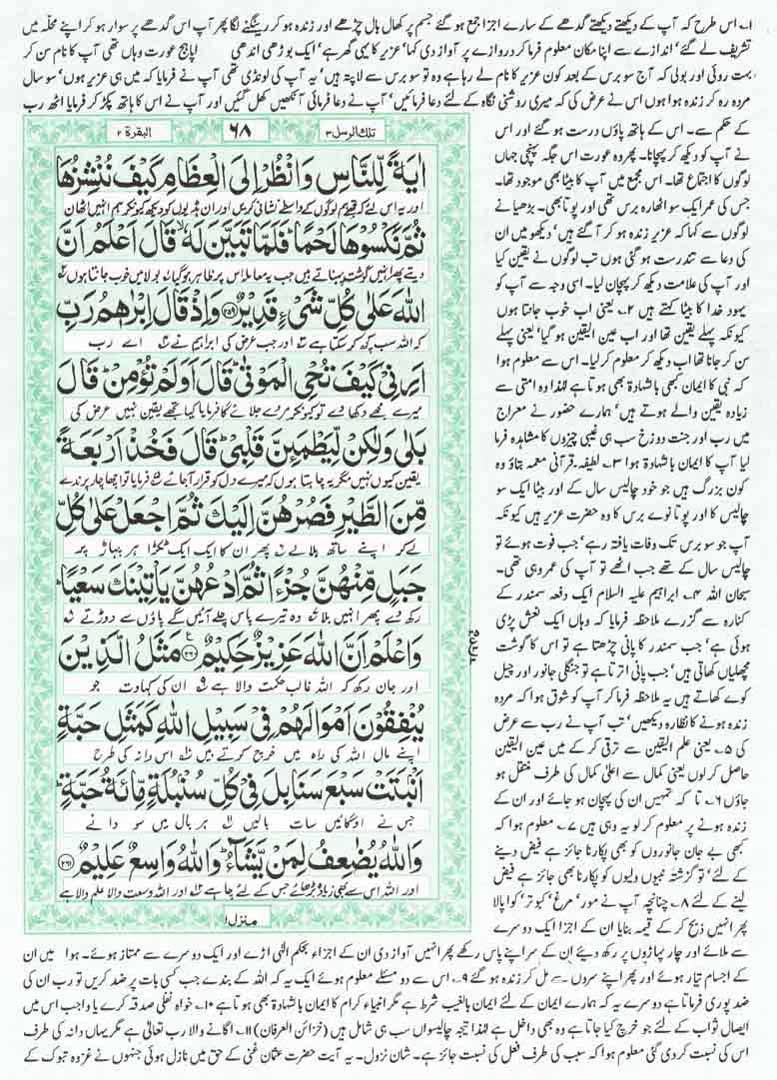 ا۔ اس طرح کہ آپ کے دیکھتے دیکھتے گدھے کے سارے اجزا جمع ہو گئے جسم پر کھال بال چڑھے اور زندہ ہو کر رینگنے لگا پھر آپ اس گدھے پر سوار ہو کر اپنے محلہ میں
تشریف لے گئے' اندازے سے اپنا مکان معلوم فرما کر دروازے پر آواز دی کہا' عزیر کا یہی گھر ہے' ایک بوڑھی اندھی اپاہج عورت وہاں تھی آپ کا نام سن کر
بہت روئی اور بولی کہ آج سو برس کے بعد کون عزیر کا نام لے رہا ہے وہ تو سو برس سے لاپتہ ہیں' یہ آپ کی لونڈی تھی آپ نے فرمایا کہ میں ہی عزیر ہوں' سو سال
مردہ رہ کر زندہ ہوا ہوں اس نے عرض کی کہ میری روشنی نگاہ کے لئے دعا فرمائیں' آپ نے دعا فرمائی آنکھیں کھل گئیں اور آپ نے اس کا ہاتھ پکڑ کر فرمایا اٹھ رب
کے حکم سے۔ اس کے ہاتھ پاؤں درست ہو گئے اور اس
نے آپ کو دیکھ کر پہچانا۔ پھر وہ عورت اس جگہ پہنچی جہاں
لوگوں کا اجتماع تھا۔ اس مجمع میں آپ کا بیٹا بھی موجود تھا۔
جس کی عمر ایک سو اٹھارہ برس تھی اور پوتا بھی۔ بڑھیا نے
لوگوں سے کہا کہ عزیر زندہ ہو کر آ گئے ہیں' دیکھو میں ان
کی دعا سے تندرست ہو گئی ہوں تب لوگوں نے یقین کیا
اور آپ کی علامت دیکھ کر پہچان لیا۔ اسی وجہ سے آپ کو
یہود خدا کا بیٹا کہتے ہیں ۲۔ یعنی اب خوب جانتا ہوں
کیونکہ پہلے یقین تھا اور اب عین الیقین ہو گیا' یعنی پہلے
سن کر جانا تھا اب دیکھ کر معلوم کر لیا۔ اس سے معلوم ہوا
کہ نبی کا ایمان کبھی بالشہادۃ بھی ہوتا ہے لہٰذا وہ امتی سے
زیادہ یقین والے ہوتے ہیں' ہمارے حضور نے معراج
میں رب اور جنت دوزخ سب ہی غیبی چیزوں کا مشاہدہ فرما
لیا آپ کا ایمان بالشہادۃ ہوا ۳۔ لطیفہ۔ قرآنی معمہ بتاؤ وہ
کون بزرگ ہیں جو خود چالیس سال کے اور بیٹا ایک سو
چالیس کا اور پوتا نوے برس کا وہ حضرت عزیر ہیں کیونکہ
آپ جو سو برس تک وفات یافتہ رہے' جب فوت ہوئے تو
چالیس سال کے تھے جب اٹھے تو آپ کی عمر وہی تھی۔
سبحان اللہ ۴۔ ابراہیم علیہ السلام ایک دفعہ سمندر کے
کنارہ سے گزرے ملاحظہ فرمایا کہ وہاں ایک نعش پڑی
ہوئی ہے' جب سمندر کا پانی چڑھتا ہے تو اس کا گوشت
مچھلیاں کھاتی ہیں' جب پانی اترتا ہے تو جنگلی جانور اور چیل
کوے کھاتے ہیں یہ ملاحظہ فرما کر آپ کو شوق ہوا کہ مردہ
زندہ ہونے کا نظارہ دیکھیں' تب آپ نے رب سے عرض
کی ۵۔ یعنی علم الیقین سے ترقی کر کے میں عین الیقین
حاصل کر لوں یعنی کمال سے اعلیٰ کمال کی طرف منتقل ہو
جاؤں ۶۔ تا کہ تمہیں ان کی پہچان ہو جائے اور ان کے
زندہ ہونے پر معلوم کر لو یہ وہی ہیں ۷۔ معلوم ہوا کہ
کبھی بے جان جانوروں کو بھی پکارنا جائز ہے فیض دینے
کے لئے' تو گزشتہ نبیوں ولیوں کو پکارنا بھی جائز ہے فیض
لینے کے لئے ۸۔ چنانچہ آپ نے مور' مرغ' کبوتر' کوا پالا
پھر انہیں ذبح کر کے قیمہ بنایا ان کے اجزا ایک دوسرے
تلك الرسل ۳
۶۸
البقرة ۲
اٰيَةً لِّلنَّاسِ وَانْظُرْ اِلَى الْعِظَامِ كَيْفَ نُنْشِزُهَا
اور یہ اس لئے کہ تجھے ہم لوگوں کے واسطے نشانی کریں اور ان ہڈیوں کو دیکھ کیونکر ہم انہیں اٹھان
ثُمَّ نَكْسُوْهَا لَحْمًا ؕ فَلَمَّا تَبَيَّنَ لَهٗ ۙ قَالَ اَعْلَمُ اَنَّ
دیتے پھر انہیں گوشت پہناتے ہیں جب یہ معاملہ اس پر ظاہر ہو گیا بولا میں خوب جانتا ہوں
اللّٰهَ عَلٰى كُلِّ شَىْءٍ قَدِيْرٌ ﴿۲۵۹﴾ وَاِذْ قَالَ اِبْرٰهٖمُ رَبِّ
کہ اللہ سب کچھ کر سکتا ہے اور جب عرض کی ابراہیم نے اے رب
اَرِنِىْ كَيْفَ تُحْىِ الْمَوْتٰى ؕ قَالَ اَوَلَمْ تُؤْمِنْ ؕ قَالَ
میرے مجھے دکھا دے تو کیونکر مردے جلائے گا فرمایا کیا تجھے یقین نہیں عرض کی
بَلٰى وَلٰكِنْ لِّيَطْمَئِنَّ قَلْبِىْ ؕ قَالَ فَخُذْ اَرْبَعَةً
یقین کیوں نہیں مگر یہ چاہتا ہوں کہ میرے دل کو قرار آجائے فرمایا تو اچھا چار پرندے
مِّنَ الطَّيْرِ فَصُرْهُنَّ اِلَيْكَ ثُمَّ اجْعَلْ عَلٰى كُلِّ
لے کر اپنے ساتھ ہلا لے پھر ان کا ایک ایک ٹکڑا ہر پہاڑ پر
جَبَلٍ مِّنْهُنَّ جُزْءًا ثُمَّ ادْعُهُنَّ يَاْتِيْنَكَ سَعْيًا ؕ
رکھ دے پھر انہیں بلا وہ تیرے پاس چلے آئیں گے پاؤں سے دوڑتے
وَاعْلَمْ اَنَّ اللّٰهَ عَزِيْزٌ حَكِيْمٌ ﴿۲۶۰﴾ مَثَلُ الَّذِيْنَ
اور جان رکھ کہ اللہ غالب حکمت والا ہے ان کی کہاوت جو
يُنْفِقُوْنَ اَمْوَالَهُمْ فِىْ سَبِيْلِ اللّٰهِ كَمَثَلِ حَبَّةٍ
اپنے مال اللہ کی راہ میں خرچ کرتے ہیں اس دانہ کی طرح
اَنْۢبَتَتْ سَبْعَ سَنَابِلَ فِىْ كُلِّ سُنْۢبُلَةٍ مِّائَةُ حَبَّةٍ ؕ
جس نے اوگائیں سات بالیں ہر بال میں سو دانے
وَاللّٰهُ يُضٰعِفُ لِمَنْ يَّشَآءُ ؕ وَاللّٰهُ وَاسِعٌ عَلِيْمٌ ﴿۲۶۱﴾
اور اللہ اس سے بھی زیادہ بڑھائے جس کے لئے چاہے اور اللہ وسعت والا علم والا ہے
منزل ۱
سے ملائے اور چار پہاڑوں پر رکھ دیئے ان کے سر اپنے پاس رکھے پھر انہیں آواز دی ان کے اجزاء بحکم الٰہی اڑے اور ایک دوسرے سے ممتاز ہوئے۔ ہوا میں ان
کے اجسام تیار ہوئے اور پھر اپنے سروں سے مل کر زندہ ہو گئے ۹۔ اس سے دو مسئلے معلوم ہوئے ایک یہ کہ اللہ کے بندے جب کسی بات پر ضد کریں تو رب ان کی
ضد پوری فرماتا ہے دوسرے یہ کہ ہمارے ایمان کے لئے ایمان بالغیب شرط ہے مگر انبیاء کرام کا ایمان بالشہادۃ بھی ہوتا ہے ۱۰۔ خواہ نفلی صدقہ کرے یا واجب اس میں
ایصال ثواب کے لئے جو خرچ کیا جاتا ہے وہ بھی داخل ہے لہٰذا تیجہ چالیسواں سب ہی شامل ہیں (خزائن العرفان) ۱۱۔ اگانے والا رب تعالیٰ ہے مگر یہاں دانہ کی طرف
اس کی نسبت کر دی گئی معلوم ہوا کہ سبب کی طرف فعل کی نسبت جائز ہے۔ شان نزول۔ یہ آیت حضرت عثمان غنی کے حق میں نازل ہوئی جنہوں نے غزوہ تبوک کے